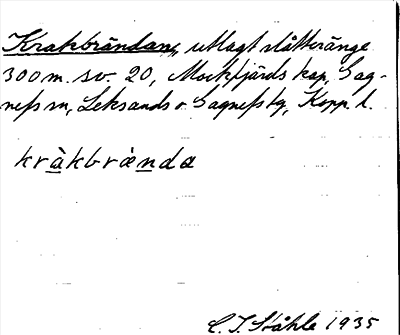 Krakbrändan, utlagt slåtteränge
300 m. sv. 20, Mockfjärds kap., Gag-
nefs sn, Leksands o. Gagnefs tg, Kopp. l.
kràkbrἀnda
C. I. Ståhle 1935